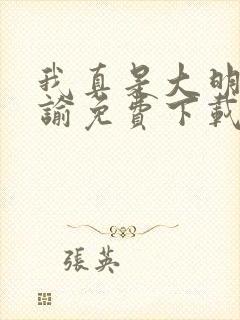 我真是大明
諭免費下載
張英